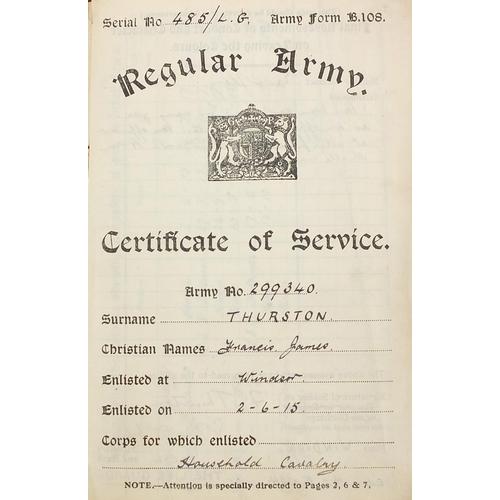 Serial No. 485/L.G. Army Form B.108.
Regular Army.
Certificate of Service.
Army No. 299340.
Surname THURSTON
Christian Names Francis James
Enlisted at Windsor
Enlisted on 2-6-15
Corps for which enlisted
Household Cavalry
NOTE.—Attention is specially directed to Pages 2, 6 & 7.